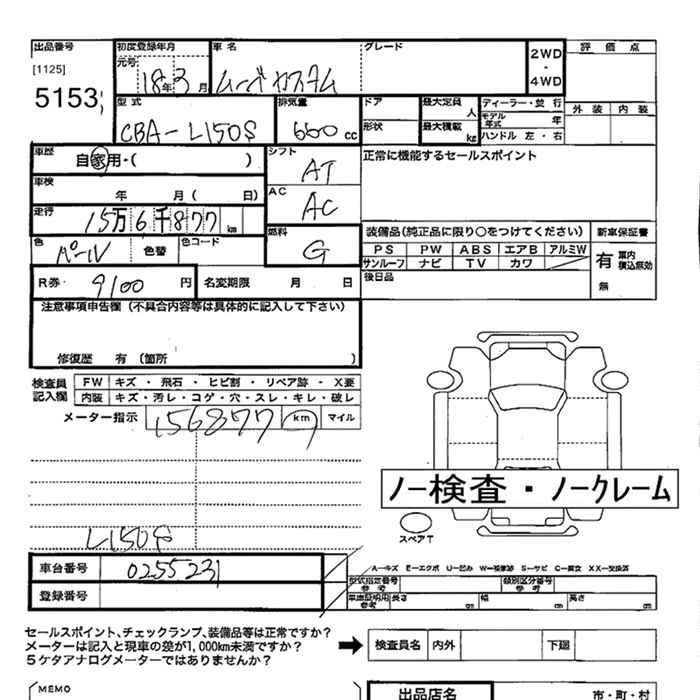 出品番号 初度登録年月 車名 グレード 評価点
[1125] 元号 18年3月 ムーヴカスタム 2WD・4WD
5153
型式 排気量 ドア 最大定員 人 ディーラー・並行 外装 内装
CBA-L150S 660cc 形状 最大積載 kg モデル年式 年
ハンドル 左・右
車歴 自家用・( ) シフト AT 正常に機能するセールスポイント
車検 年 月( 日) AC AC
走行 15万6千877km
燃料 G 装備品(純正品に限り○をつけてください) 新車保証書
色 パール 色替 色コード PS PW ABS エアB アルミW 有 車内積込無効
サンルーフ ナビ TV カワ
R券 9100円 名変期限 月 日 後日品 無
注意事項申告欄(不具合内容等は具体的に記入して下さい)
修復歴 有(箇所 )
検査員記入欄 FW キズ・飛石・ヒビ割・リペア跡・X要
内装 キズ・汚レ・コゲ・穴・スレ・キレ・破レ
メーター指示 156877 km マイル
ノー検査・ノークレーム
L150S スペアT
車台番号 0255231
A-キズ E-エクボ U-凹み W-補修跡 S-サビ C-腐食 XX-交換済
登録番号
型式指定番号 参考 類別区分番号 参考
車庫証明用 参考 長さ cm 幅 cm 高さ cm
セールスポイント、チェックランプ、装備品等は正常ですか?
メーターは記入と現車の差が1,000km未満ですか? ➡ 検査員名 内外 下廻
5ケタアナログメーターではありませんか?
MEMO 出品店名 市・町・村